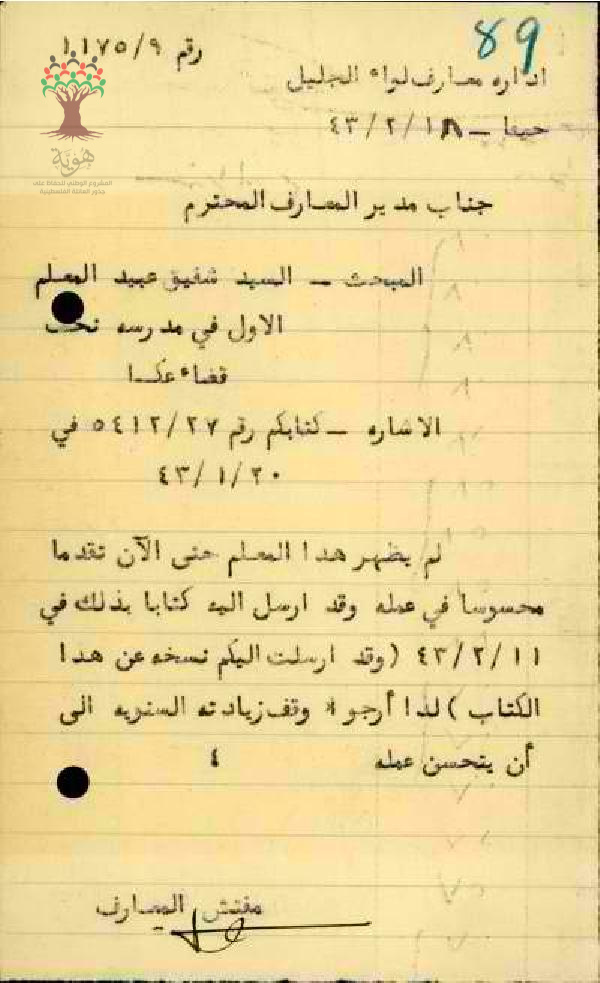 89
رقم ١١٧٥/٩
اداره معارف لواء الجليل
حيفا — ٤٣/٢/١٨
هُوِيَّة
المشروع الوطني للحفاظ على
جذور العائلة الفلسطينية
جناب مدير المعارف المحترم
المبحث — السيد شفيق عبيد المعلم
الاول في مدرسه نحف
قضاء عكا
الاشاره — كتابكم رقم ٥٤١٢/٢٧ في
٤٣/١/٢٠
لم يظهر هذا المعلم حتى الآن تقدما
محسوسا في عمله وقد ارسل اليه كتابا بذلك في
٤٣/٢/١١ (وقد ارسلت اليكم نسخه عن هذا
الكتاب) لذا أرجو وقف زيادته السنويه الى
أن يتحسن عمله ٤
مفتش المعارف